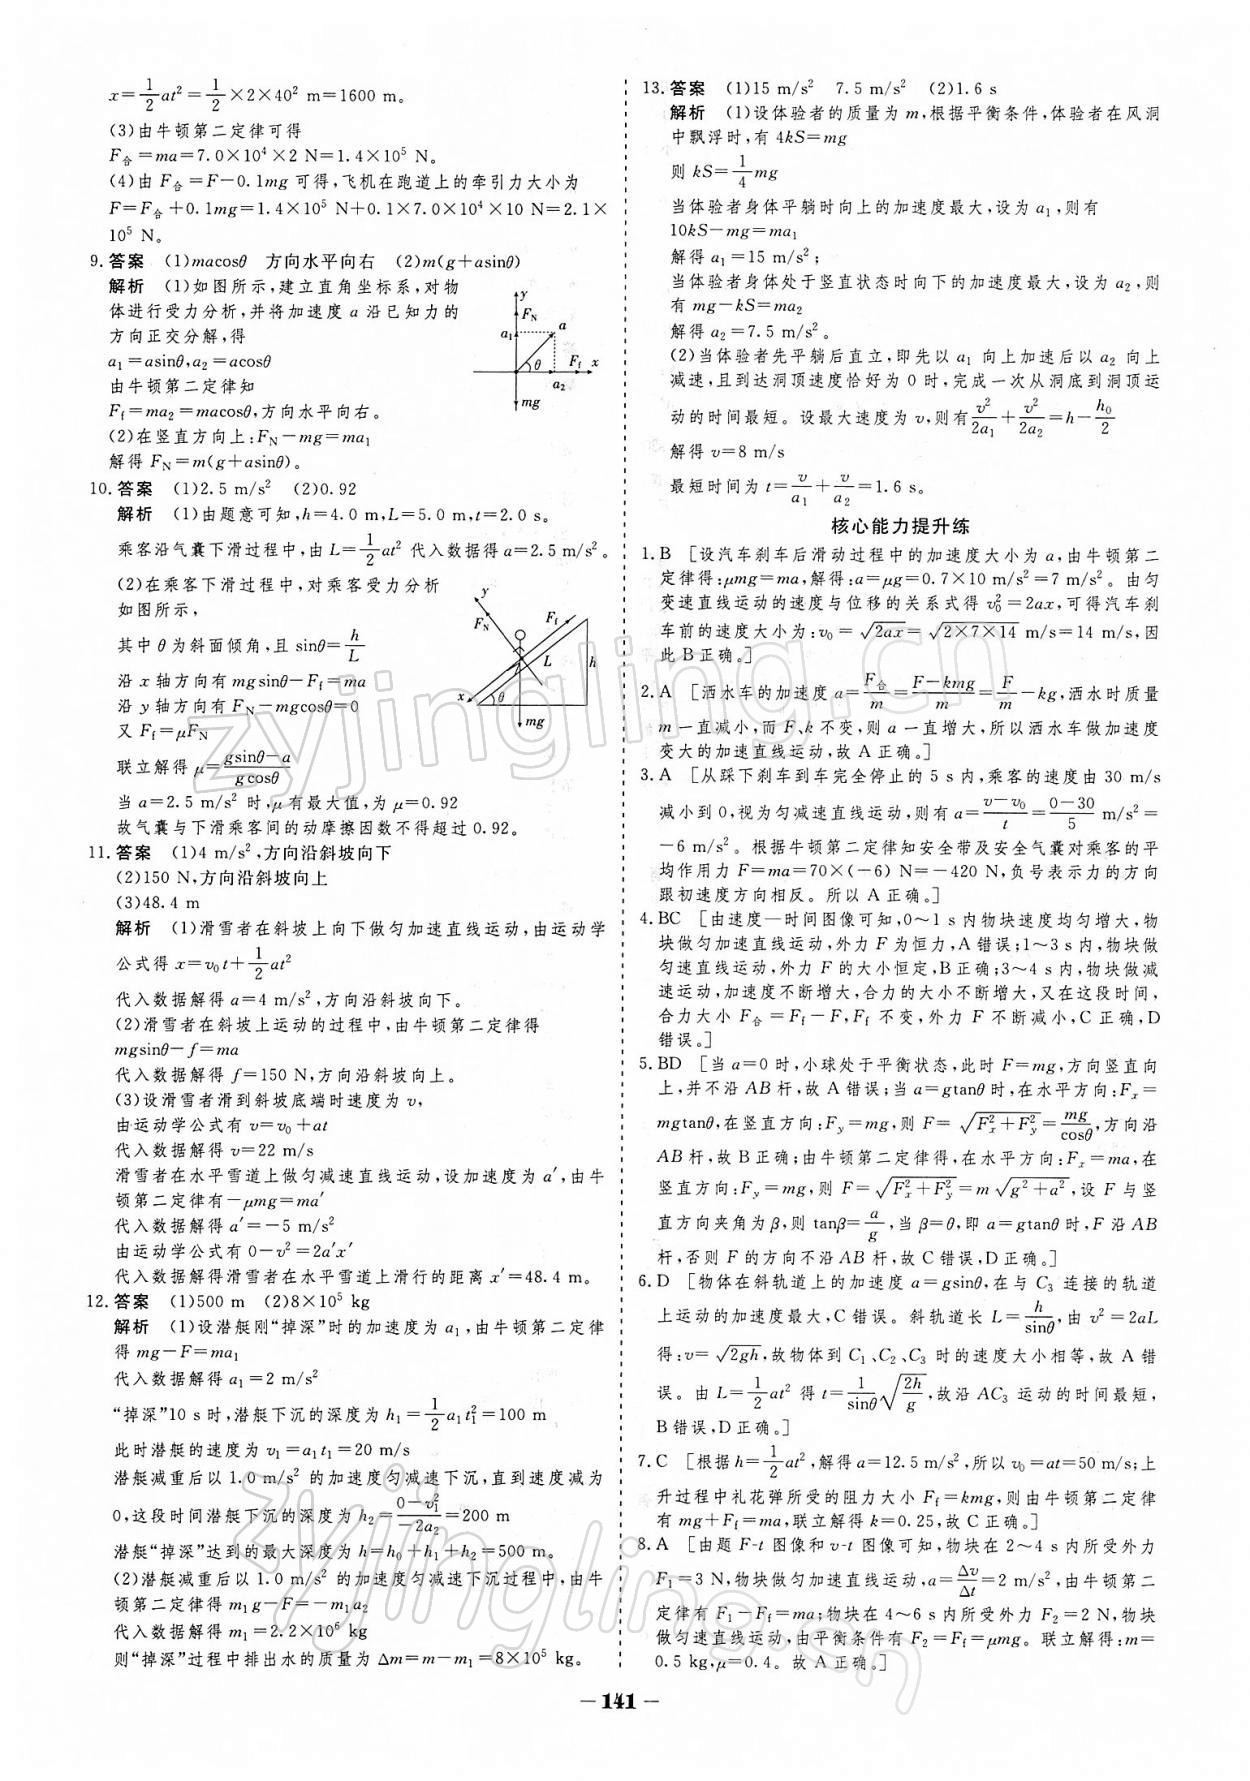 x=1/2at²=1/2×2×40² m=1600 m。
(3)由牛顿第二定律可得
F合=ma=7.0×10⁴×2 N=1.4×10⁵ N。
(4)由 F合=F-0.1mg 可得,飞机在跑道上的牵引力大小为
F=F合+0.1mg=1.4×10⁵ N+0.1×7.0×10⁴×10 N=2.1×
10⁵ N。
9.答案 (1)macosθ 方向水平向右 (2)m(g+asinθ)
解析 (1)如图所示,建立直角坐标系,对物
体进行受力分析,并将加速度 a 沿已知力的
方向正交分解,得
a₁=asinθ,a₂=acosθ
由牛顿第二定律知
Ff=ma₂=macosθ,方向水平向右。
(2)在竖直方向上:FN-mg=ma₁
解得 FN=m(g+asinθ)。
y
FN
a₁
a
θ
Ff
x
a₂
mg
10.答案 (1)2.5 m/s² (2)0.92
解析 (1)由题意可知,h=4.0 m,L=5.0 m,t=2.0 s。
乘客沿气囊下滑过程中,由 L=1/2at² 代入数据得 a=2.5 m/s²。
(2)在乘客下滑过程中,对乘客受力分析
如图所示,
其中 θ 为斜面倾角,且 sinθ=h/L
沿 x 轴方向有 mgsinθ-Ff=ma
沿 y 轴方向有 FN-mgcosθ=0
又 Ff=μFN
联立解得 μ=(gsinθ-a)/(gcosθ)
当 a=2.5 m/s² 时,μ 有最大值,为 μ=0.92
故气囊与下滑乘客间的动摩擦因数不得超过 0.92。
y
FN
Ff
L
h
x
θ
mg
11.答案 (1)4 m/s²,方向沿斜坡向下
(2)150 N,方向沿斜坡向上
(3)48.4 m
解析 (1)滑雪者在斜坡上向下做匀加速直线运动,由运动学
公式得 x=v₀t+1/2at²
代入数据解得 a=4 m/s²,方向沿斜坡向下。
(2)滑雪者在斜坡上运动的过程中,由牛顿第二定律得
mgsinθ-f=ma
代入数据解得 f=150 N,方向沿斜坡向上。
(3)设滑雪者滑到斜坡底端时速度为 v,
由运动学公式有 v=v₀+at
代入数据解得 v=22 m/s
滑雪者在水平雪道上做匀减速直线运动,设加速度为 a′,由牛
顿第二定律有-μmg=ma′
代入数据解得 a′=-5 m/s²
由运动学公式有 0-v²=2a′x′
代入数据解得滑雪者在水平雪道上滑行的距离 x′=48.4 m。
12.答案 (1)500 m (2)8×10⁵ kg
解析 (1)设潜艇刚“掉深”时的加速度为 a₁,由牛顿第二定律
得 mg-F=ma₁
代入数据解得 a₁=2 m/s²
“掉深”10 s时,潜艇下沉的深度为 h₁=1/2a₁t₁²=100 m
此时潜艇的速度为 v₁=a₁t₁=20 m/s
潜艇减重后以 1.0 m/s² 的加速度匀减速下沉,直到速度减为
0,这段时间潜艇下沉的深度为 h₂=(0-v₁²)/(-2a₂)=200 m
潜艇“掉深”达到的最大深度为 h=h₀+h₁+h₂=500 m。
(2)潜艇减重后以 1.0 m/s² 的加速度匀减速下沉过程中,由牛
顿第二定律得 m₁g-F=-m₁a₂
代入数据解得 m₁=2.2×10⁶ kg
则“掉深”过程中排出水的质量为 Δm=m-m₁=8×10⁵ kg。
13.答案 (1)15 m/s² 7.5 m/s² (2)1.6 s
解析 (1)设体验者的质量为 m,根据平衡条件,体验者在风洞
中飘浮时,有 4kS=mg
则 kS=1/4mg
当体验者身体平躺时向上的加速度最大,设为 a₁,则有
10kS-mg=ma₁
解得 a₁=15 m/s²;
当体验者身体处于竖直状态时向下的加速度最大,设为 a₂,则
有 mg-kS=ma₂
解得 a₂=7.5 m/s²。
(2)当体验者先平躺后直立,即先以 a₁ 向上加速后以 a₂ 向上
减速,且到达洞顶速度恰好为 0 时,完成一次从洞底到洞顶运
动的时间最短。设最大速度为 v,则有v²/2a₁+v²/2a₂=h-h₀/2
解得 v=8 m/s
最短时间为 t=v/a₁+v/a₂=1.6 s。
核心能力提升练
1.B [设汽车刹车后滑动过程中的加速度大小为 a,由牛顿第二
定律得:μmg=ma,解得:a=μg=0.7×10 m/s²=7 m/s²。由匀
变速直线运动的速度与位移的关系式得 v₀²=2ax,可得汽车刹
车前的速度大小为:v₀=√(2ax)=√(2×7×14) m/s=14 m/s,因
此 B正确。]
2.A [洒水车的加速度 a=F合/m=(F-kmg)/m=F/m-kg,洒水时质量
m 一直减小,而 F、k 不变,则 a 一直增大,所以洒水车做加速度
变大的加速直线运动,故 A 正确。]
3.A [从踩下刹车到车完全停止的 5 s内,乘客的速度由 30 m/s
减小到 0,视为匀减速直线运动,则有 a=(v-v₀)/t=(0-30)/5 m/s²=
-6 m/s²。根据牛顿第二定律知安全带及安全气囊对乘客的平
均作用力 F=ma=70×(-6) N=-420 N,负号表示力的方向
跟初速度方向相反。所以 A正确。]
4.BC [由速度—时间图像可知,0~1 s内物块速度均匀增大,物
块做匀加速直线运动,外力 F 为恒力,A 错误;1~3 s内,物块做
匀速直线运动,外力 F 的大小恒定,B正确;3~4 s内,物块做减
速运动,加速度不断增大,合力的大小不断增大,又在这段时间,
合力大小 F合=Ff-F,Ff 不变,外力 F 不断减小,C 正确,D
错误。]
5.BD [当 a=0 时,小球处于平衡状态,此时 F=mg,方向竖直向
上,并不沿 AB 杆,故 A 错误;当 a=gtanθ时,在水平方向:Fx=
mgtanθ,在竖直方向:Fy=mg,则 F=√(Fx²+Fy²)=mg/cosθ,方向沿
AB 杆,故 B 正确;由牛顿第二定律得,在水平方向:Fx=ma,在
竖直方向:Fy=mg,则 F=√(Fx²+Fy²)=m√(g²+a²),设 F 与竖
直方向夹角为 β,则 tanβ=a/g,当 β=θ,即 a=gtanθ 时,F 沿 AB
杆,否则 F 的方向不沿 AB 杆,故 C 错误,D正确。]
6.D [物体在斜轨道上的加速度 a=gsinθ,在与 C₃ 连接的轨道
上运动的加速度最大,C 错误。斜轨道长 L=h/sinθ,由 v²=2aL
得:v=√(2gh),故物体到 C₁、C₂、C₃ 时的速度大小相等,故 A 错
误。由 L=1/2at² 得 t=1/sinθ√(2h/g),故沿 AC₃ 运动的时间最短,
B错误,D正确。]
7.C [根据 h=1/2at²,解得 a=12.5 m/s²,所以 v₀=at=50 m/s;上
升过程中礼花弹所受的阻力大小 Ff=kmg,则由牛顿第二定律
有 mg+Ff=ma,联立解得 k=0.25,故 C正确。]
8.A [由题 F-t 图像和 v-t 图像可知,物块在 2~4 s内所受外力
F₁=3 N,物块做匀加速直线运动,a=Δv/Δt=2 m/s²,由牛顿第二
定律有 F₁-Ff=ma;物块在 4~6 s内所受外力 F₂=2 N,物块
做匀速直线运动,由平衡条件有 F₂=Ff=μmg。联立解得:m=
0.5 kg,μ=0.4。故 A正确。]
- 141 -
zyjingling.cn
zyjingling.cn